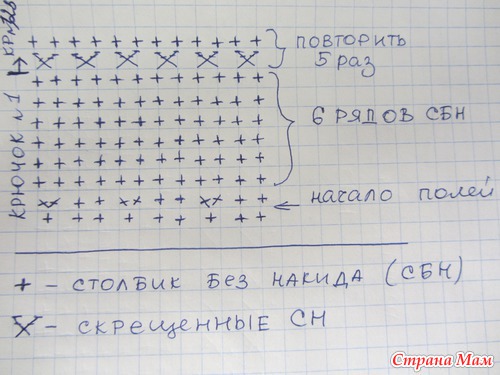 ПОВТОРИТЬ
5 РАЗ
КРЮЧОК №1
6 РЯДОВ СБН
НАЧАЛО ПОЛЕЙ
+ - СТОЛБИК БЕЗ НАКИДА (СБН)
X - СКРЕЩЕННЫЕ СН
Страна Мам